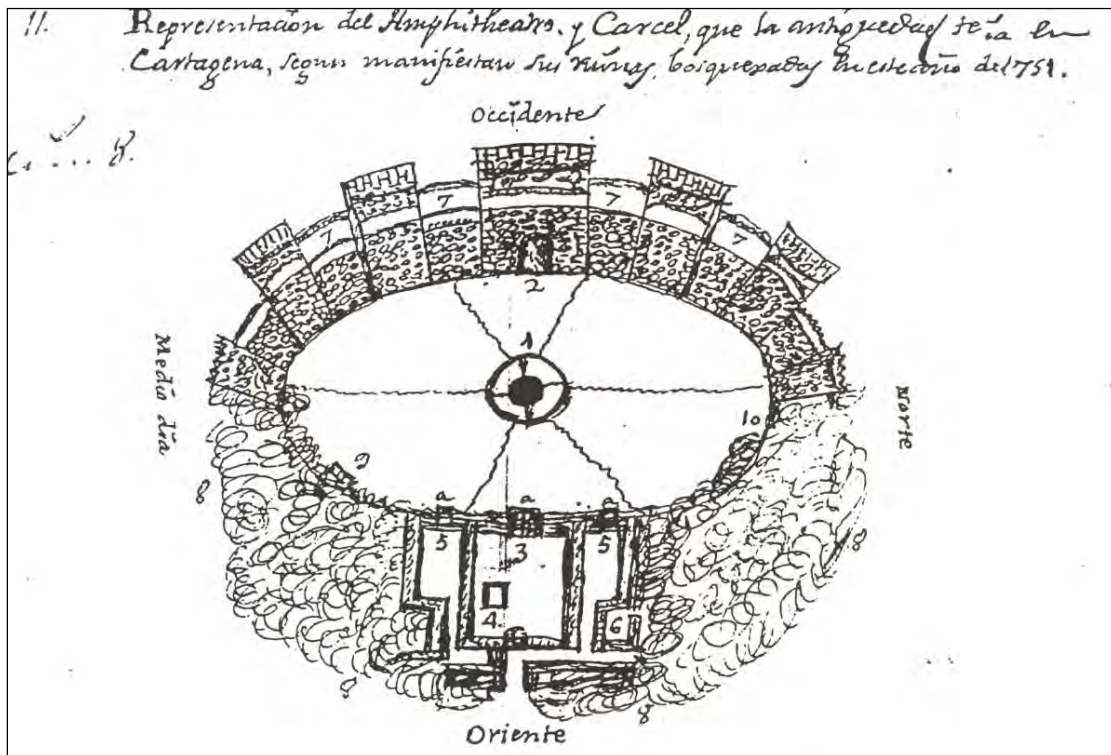 11. Representacion del Amphitheatro, y Carcel, que la antiguedad tenia en
Cartagena, segun manifiestan sus ruinas, bosquexadas en este año de 1751.
Occidente
8.
7
7
7
7
2
1
Medio dia
Norte
10
9
8
a
a
a
5
3
5
8
4
6
8
8
Oriente